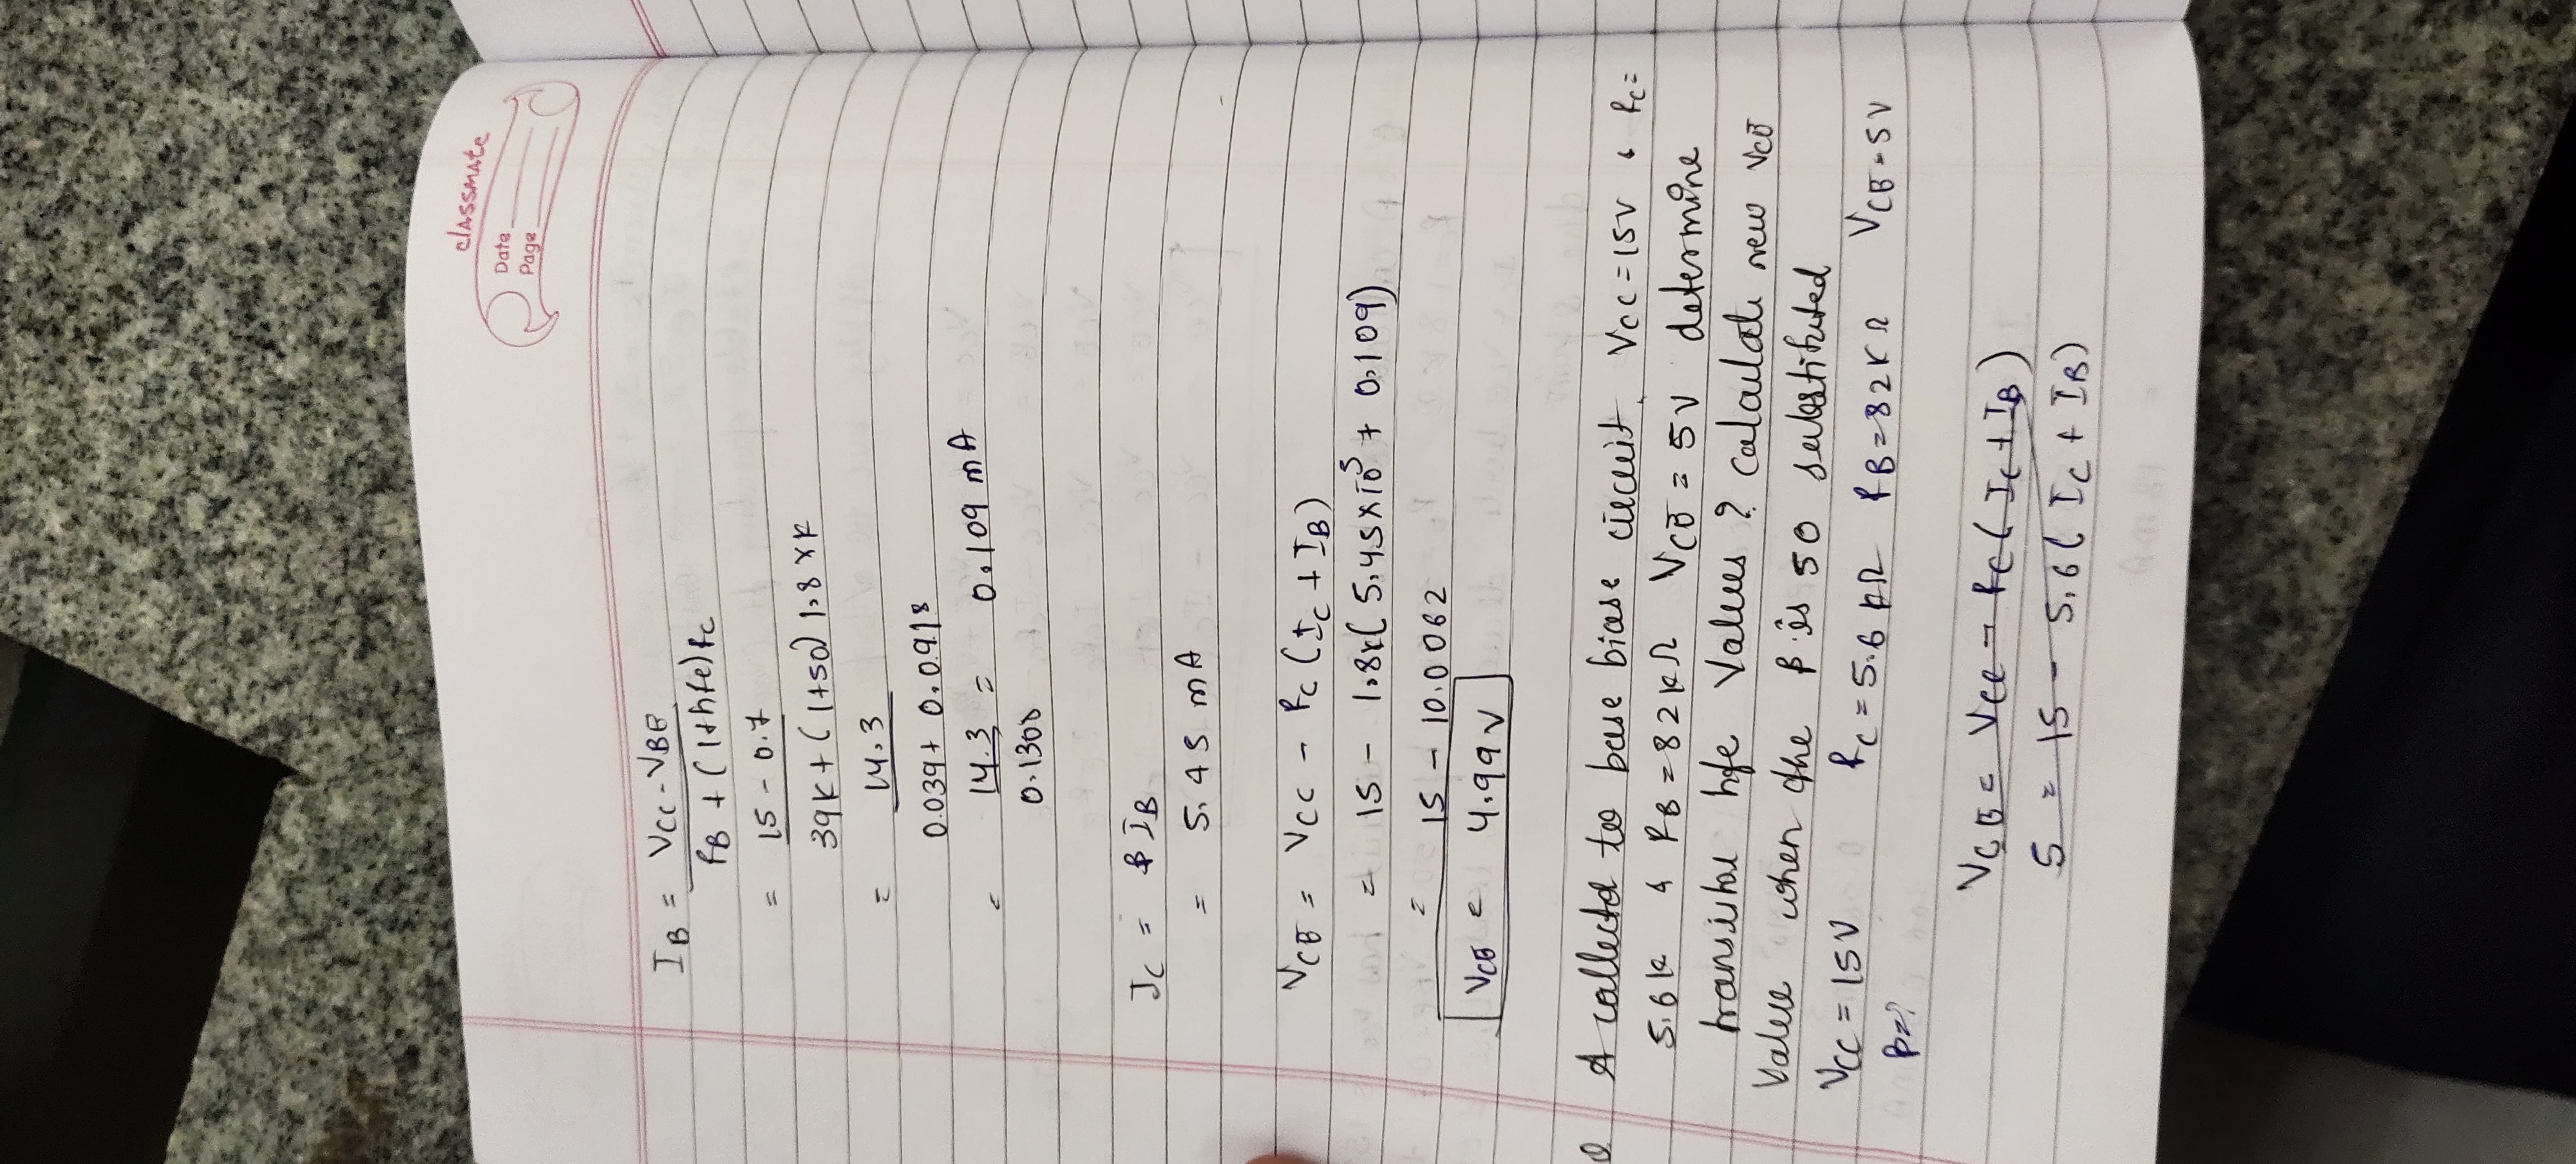 classmate
Date
Page
IB = VCC - VBE
RB + (1+hfe)RC
= 15 - 0.7
39K + (1+50) 1.8 × K
= 14.3
0.039 + 0.0918
= 14.3 = 0.109 mA
0.1308
IC = β IB
= 5.45 mA
VCE = VCC - RC (IC + IB)
= 15 - 1.8k( 5.45×10³ + 0.109)
= 15 - 10.0062
VCE = 4.99 V
Q A collector to base biase circuit. VCC = 15V & RC =
5.6k & RB = 82 kΩ VCE = 5V determine
transistor hfe Values ? calculate new VCE
Value when the β is 50 substituted
VCC = 15V RC = 5.6 kΩ RB = 82K Ω VCE = 5V
β = ?
VCE = VCC - RC ( IC + IB )
5 = 15 - 5.6 ( IC + IB)